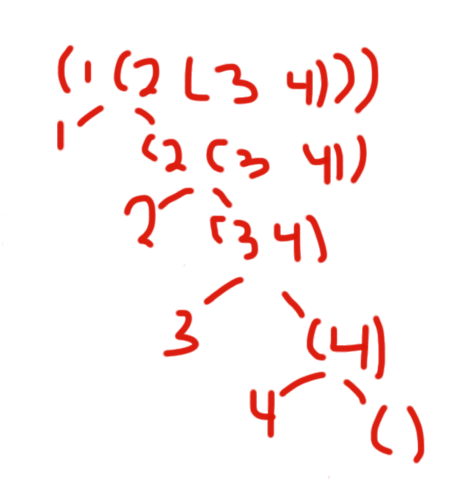 (1 (2 (3 4)))
1
(2 (3 4))
2
(3 4)
3
(4)
4
()